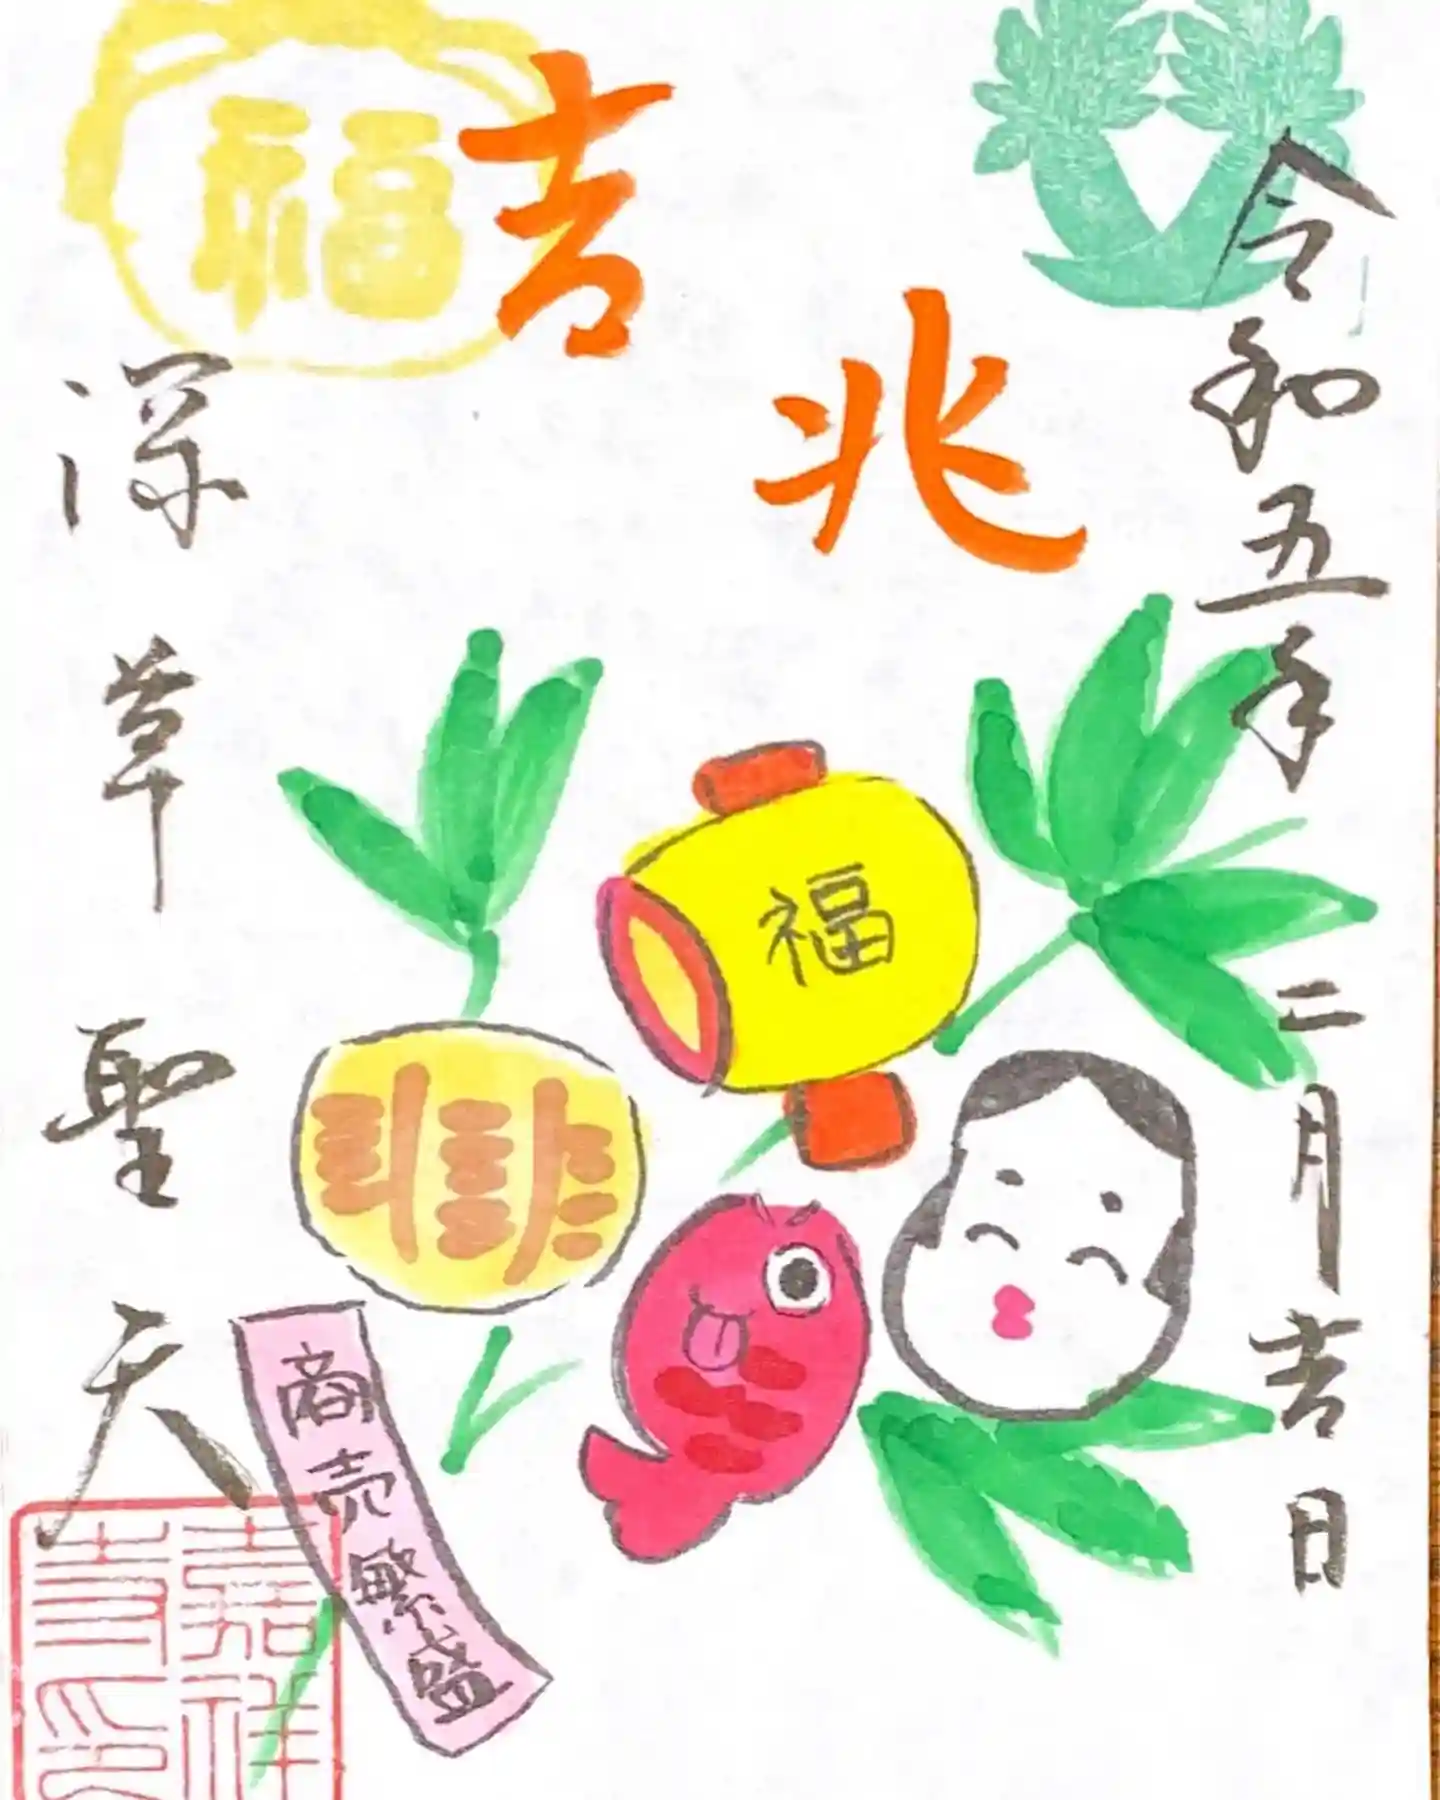 令和五年二月吉日
吉兆
福
福
商売繁盛
深草聖天
嘉祥寺印